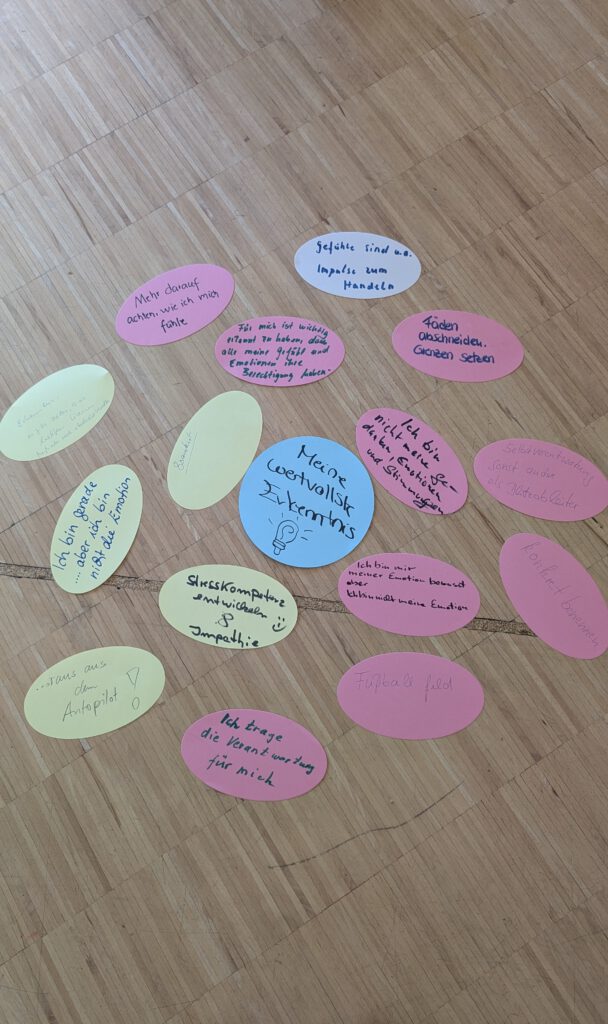 Gefühle sind u.a.
Impulse zum
Handeln
Mehr darauf
achten, wie ich mich
fühle
Für mich ist wichtig
erkannt zu haben, dass
alle meine Gefühl und
Emotionen ihre
Berechtigung haben.
Fäden
abschneiden.
Grenzen setzen
Ich bin
nicht meine Ge-
danken, Emotionen
und Stimmungen
Selbstverantwortung
sonst andere
als Blitzableiter
Meine
wertvollste
Erkenntnis
Ich bin gerade
... aber ich bin
nicht die Emotion
Stresskompetenz
entwickeln
&
Impathie
Ich bin mir
meiner Emotion bewusst
aber
Ich bin nicht meine Emotion
Konflikt benennen
...raus aus
dem
Autopilot!
Fußballfeld
Ich trage
die Verantwortung
für mich